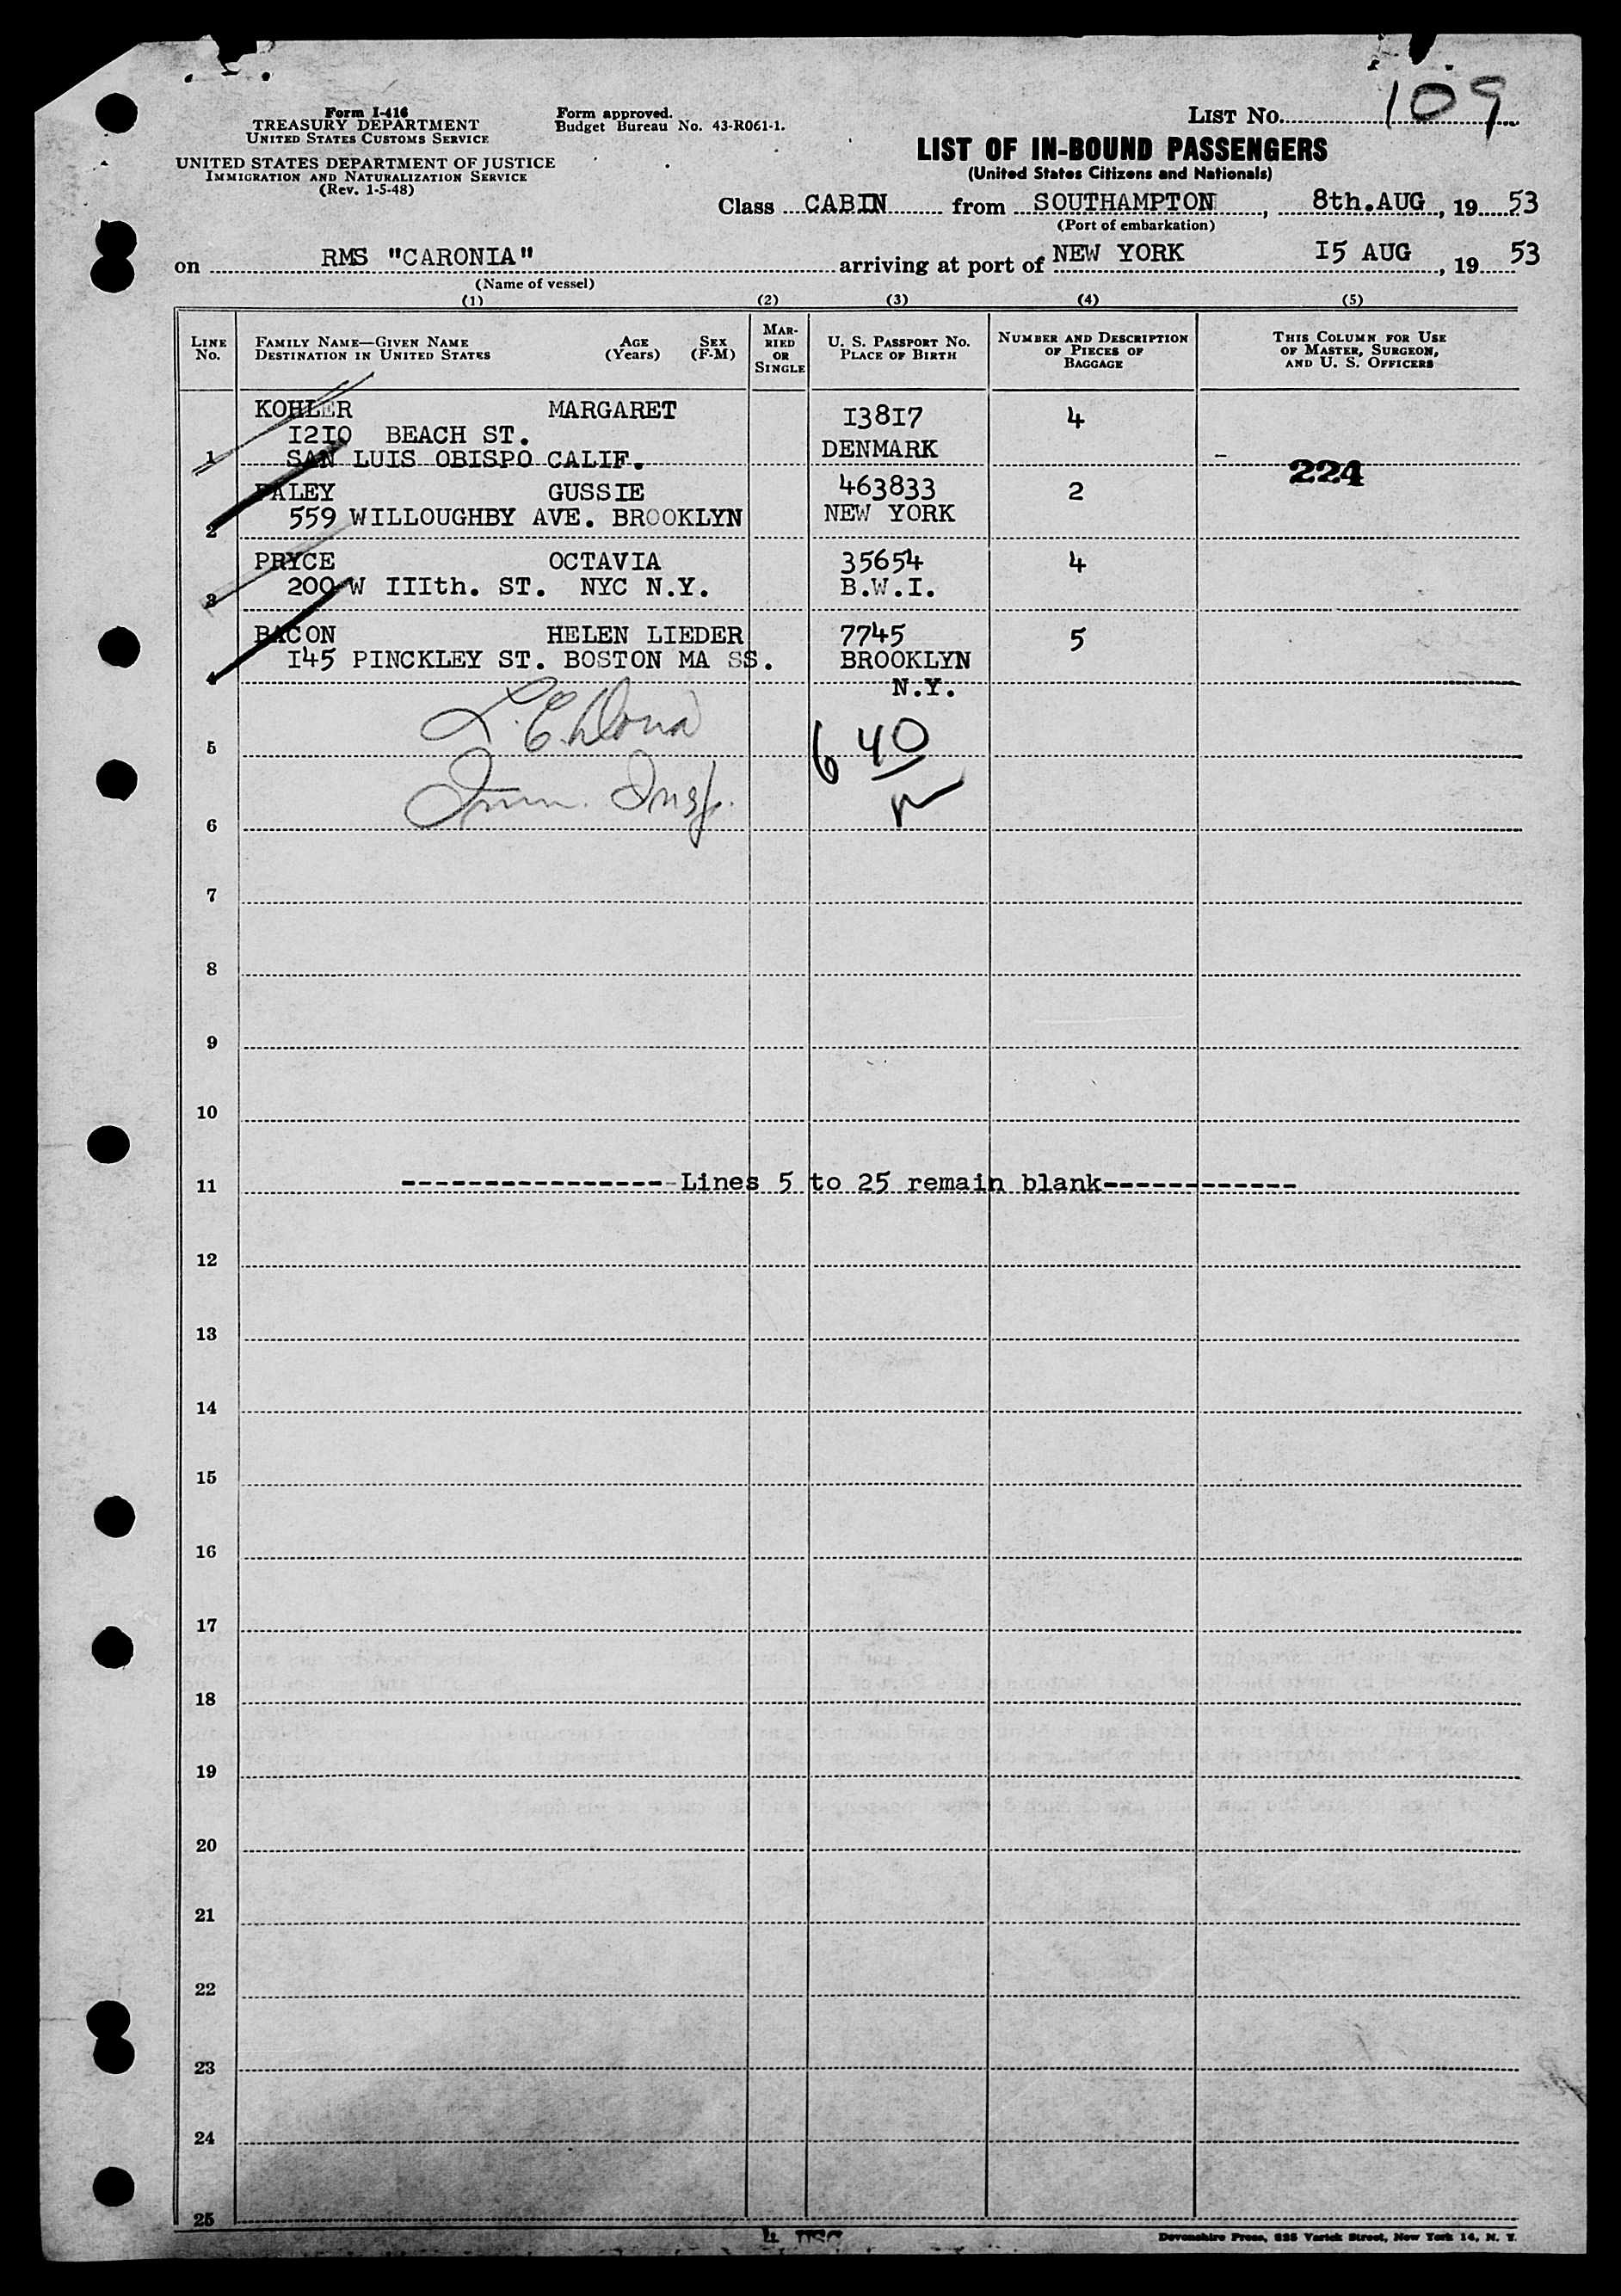 Form I-416
TREASURY DEPARTMENT
UNITED STATES CUSTOMS SERVICE
UNITED STATES DEPARTMENT OF JUSTICE
IMMIGRATION AND NATURALIZATION SERVICE
(Rev. 1-5-48)
Form approved.
Budget Bureau No. 43-R061-1.
LIST NO. 109
LIST OF IN-BOUND PASSENGERS
(United States Citizens and Nationals)
Class CABIN from SOUTHAMPTON, 8th.AUG, 19 53
(Port of embarkation)
on RMS "CARONIA" arriving at port of NEW YORK I5 AUG, 19 53
(Name of vessel)
(1) (2) (3) (4) (5)
LINE No. FAMILY NAME—GIVEN NAME DESTINATION IN UNITED STATES AGE (Years) SEX (F-M) MARRIED OR SINGLE U. S. PASSPORT NO. PLACE OF BIRTH NUMBER AND DESCRIPTION OF PIECES OF BAGGAGE THIS COLUMN FOR USE OF MASTER, SURGEON, AND U. S. OFFICERS
KOHLER MARGARET I38I7 4
I2IO BEACH ST. DENMARK
1 SAN LUIS OBISPO CALIF.
224
PALEY GUSSIE 463833 2
559 WILLOUGHBY AVE. BROOKLYN NEW YORK
2
PRYCE OCTAVIA 35654 4
200 W IIIth. ST. NYC N.Y. B.W.I.
3
BACON HELEN LIEDER 7745 5
I45 PINCKLEY ST. BOSTON MA SS. BROOKLYN
4 N.Y.
5 640
6 Imm. Insp.
7
8
9
10
11 ---------------- Lines 5 to 25 remain blank------------
12
13
14
15
16
17
18
19
20
21
22
23
24
25
4 USC
Devonshire Press, 225 Varick Street, New York 14, N. Y.